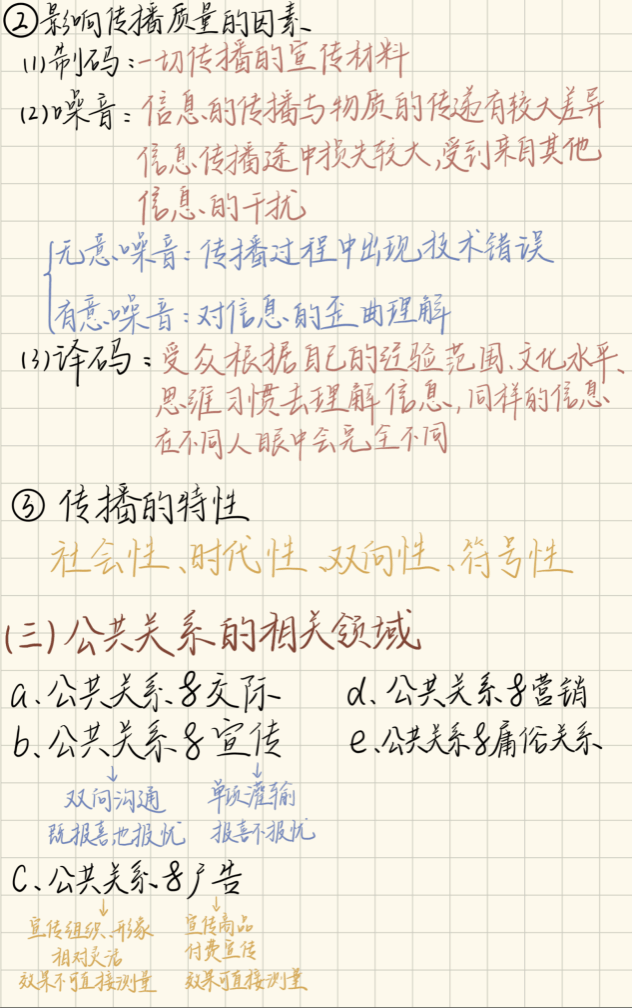 ②影响传播质量的因素
(1)制码:一切传播的宣传材料
(2)噪音:信息的传播与物质的传递有较大差异
信息传播途中损失较大,受到来自其他
信息的干扰
无意噪音:传播过程中出现技术错误
有意噪音:对信息的歪曲理解
(3)译码:受众根据自己的经验范围、文化水平、
思维习惯去理解信息,同样的信息
在不同人眼中会完全不同
③ 传播的特性
社会性、时代性、双向性、符号性
(三)公共关系的相关领域
a、公共关系&交际 d、公共关系&营销
b、公共关系&宣传 e、公共关系&庸俗关系
↓ ↓
双向沟通 单项灌输
既报喜也报忧 报喜不报忧
C、公共关系&广告
↓ ↓
宣传组织、形象 宣传商品
相对灵活 付费宣传
效果不可直接测量 效果可直接测量